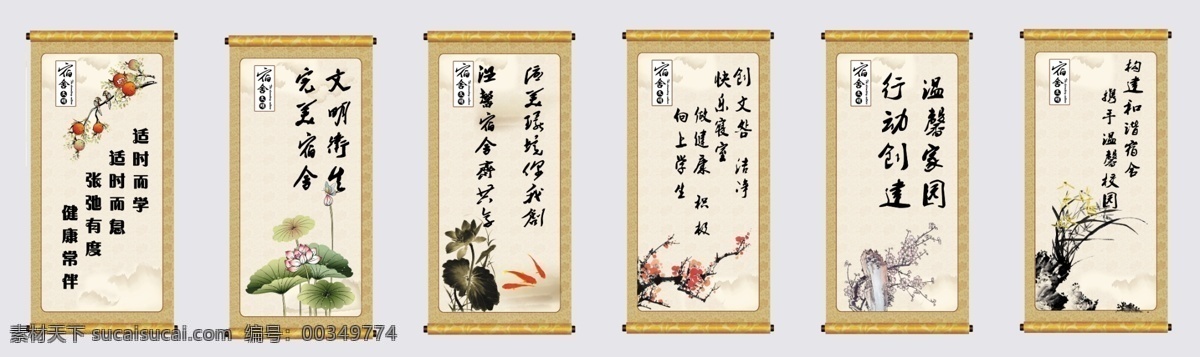 宿舍文明
适时而学
适时而息
张弛有度
健康常伴
宿舍文明
文明衛生
完美宿舍
宿舍文明
优美环境你我創
温馨宿舍齊共享
宿舍文明
创文 洁净
快乐寝室
做健康 积极
向上学生
宿舍文明
温馨家园
行动创建
宿舍文明
构建和谐宿舍
携手温馨校园
素材天下 sucaisucai.com 编号：00349774